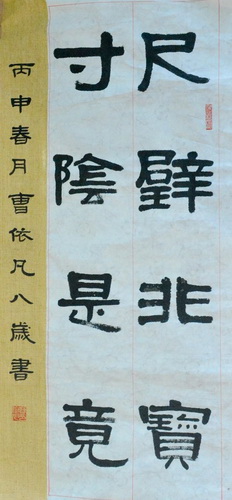 尺璧非寶
寸陰是竟
丙申春月曹依凡八歲書